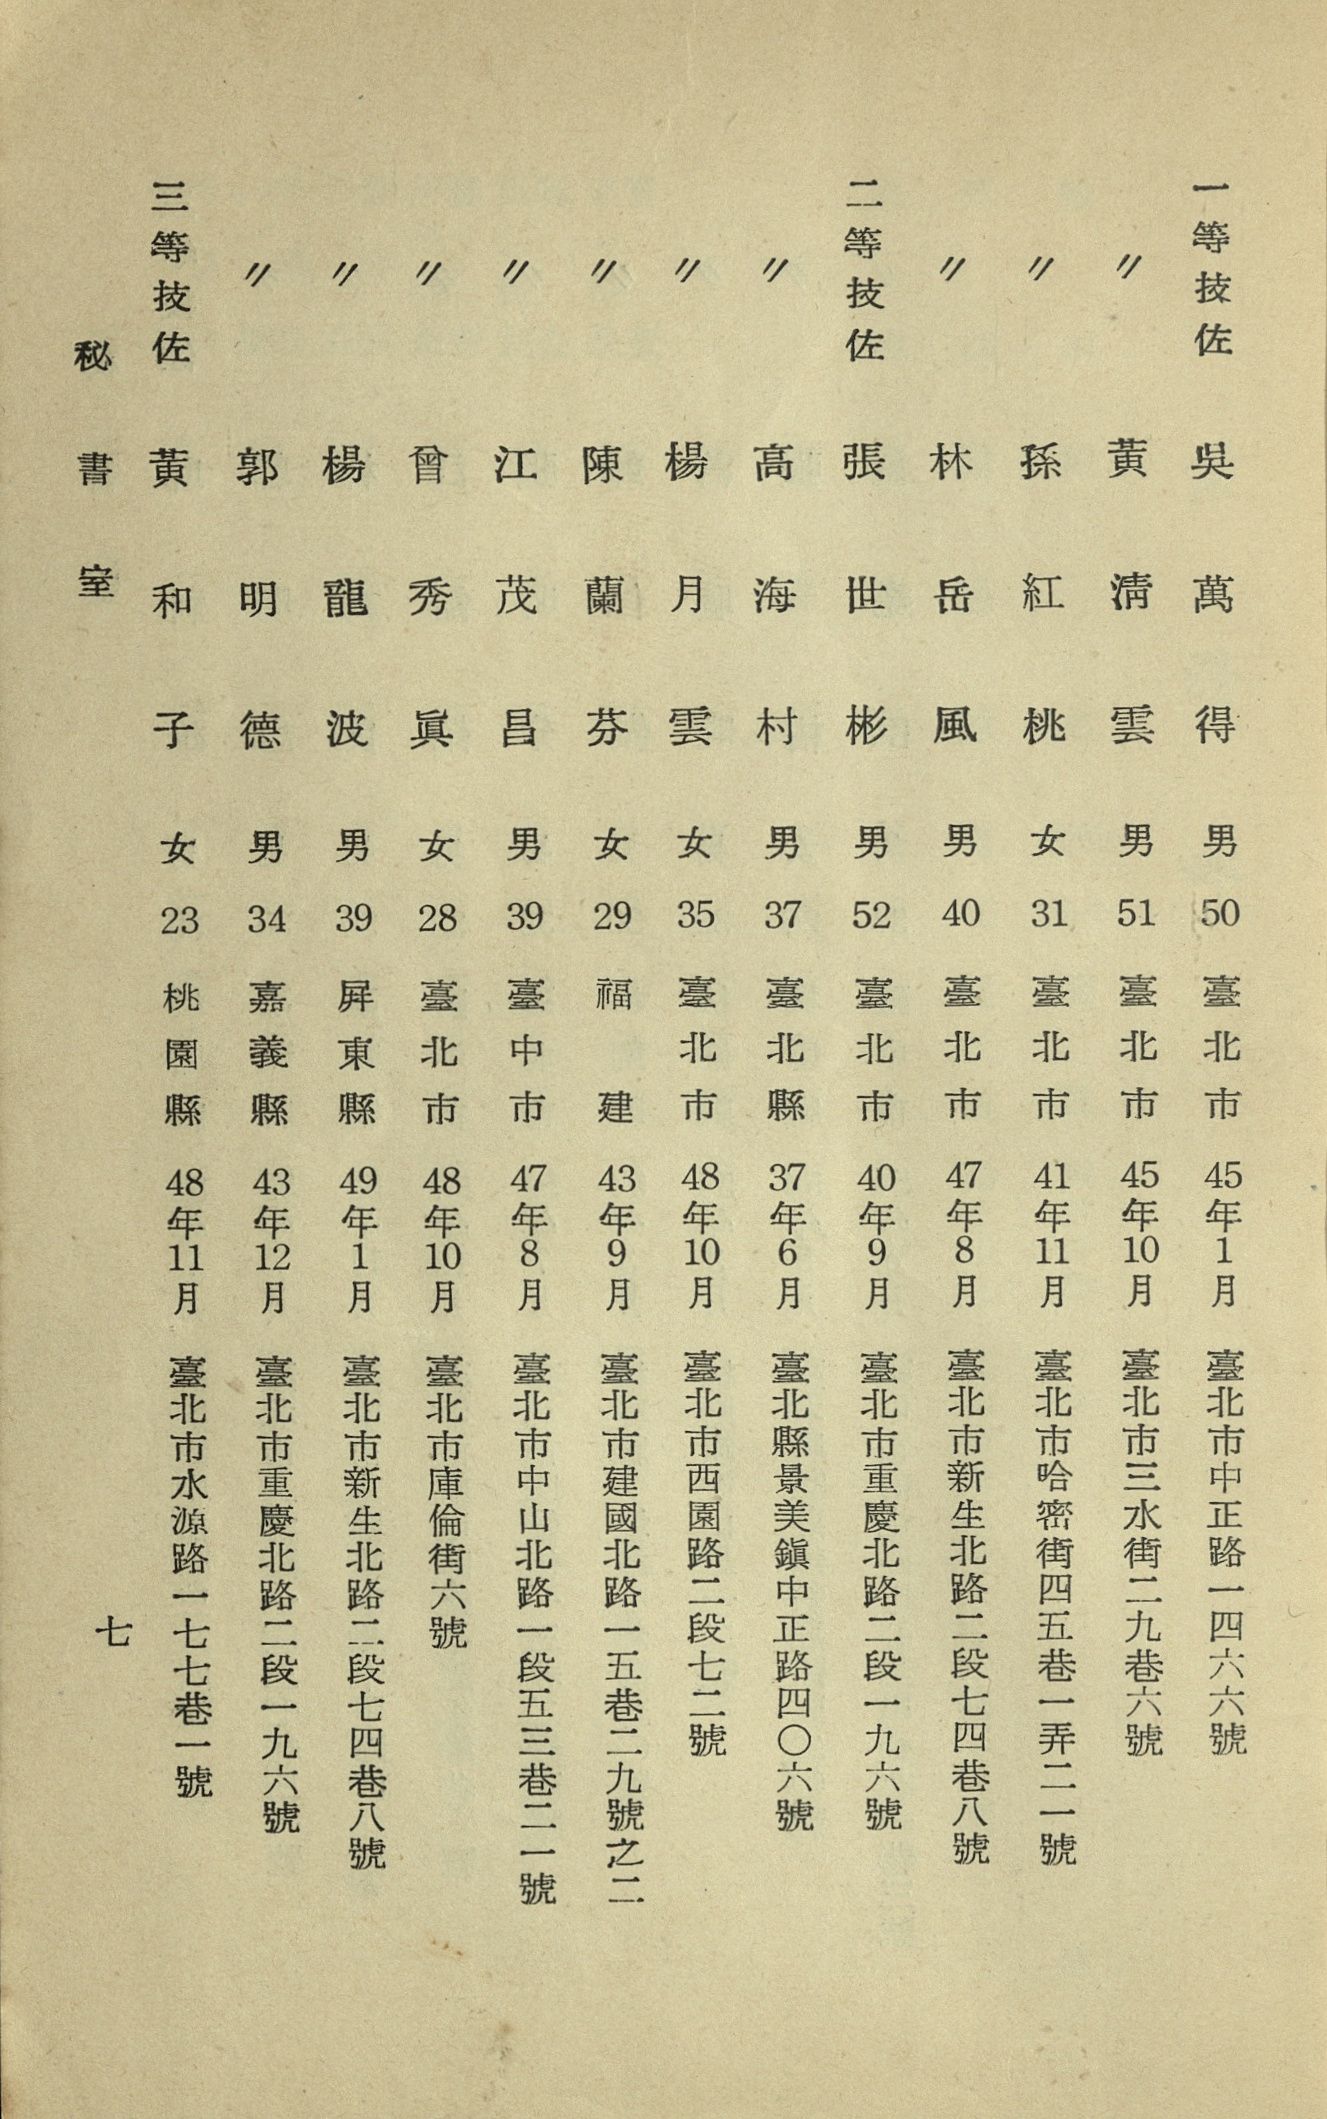 一等技佐 吳萬得 男 50 臺北市 45年1月 臺北市中正路一四六六號
〃 黃淸雲 男 51 臺北市 45年10月 臺北市三水街二九巷六號
〃 孫紅桃 女 31 臺北市 41年11月 臺北市哈密街四五巷一弄二一號
〃 林岳風 男 40 臺北市 47年8月 臺北市新生北路二段七四巷八號
二等技佐 張世彬 男 52 臺北市 40年9月 臺北市重慶北路二段一九六號
〃 高海村 男 37 臺北縣 37年6月 臺北縣景美鎭中正路四〇六號
〃 楊月雲 女 35 臺北市 48年10月 臺北市西園路二段七二號
〃 陳蘭芬 女 29 福建 43年9月 臺北市建國北路一五巷二九號之二
〃 江茂昌 男 39 臺中市 47年8月 臺北市中山北路一段五三巷二一號
〃 曾秀眞 女 28 臺北市 48年10月 臺北市庫倫街六號
〃 楊龍波 男 39 屛東縣 49年1月 臺北市新生北路二段七四巷八號
〃 郭明德 男 34 嘉義縣 43年12月 臺北市重慶北路二段一九六號
三等技佐 黃和子 女 23 桃園縣 48年11月 臺北市水源路一七七巷一號
秘書室 七